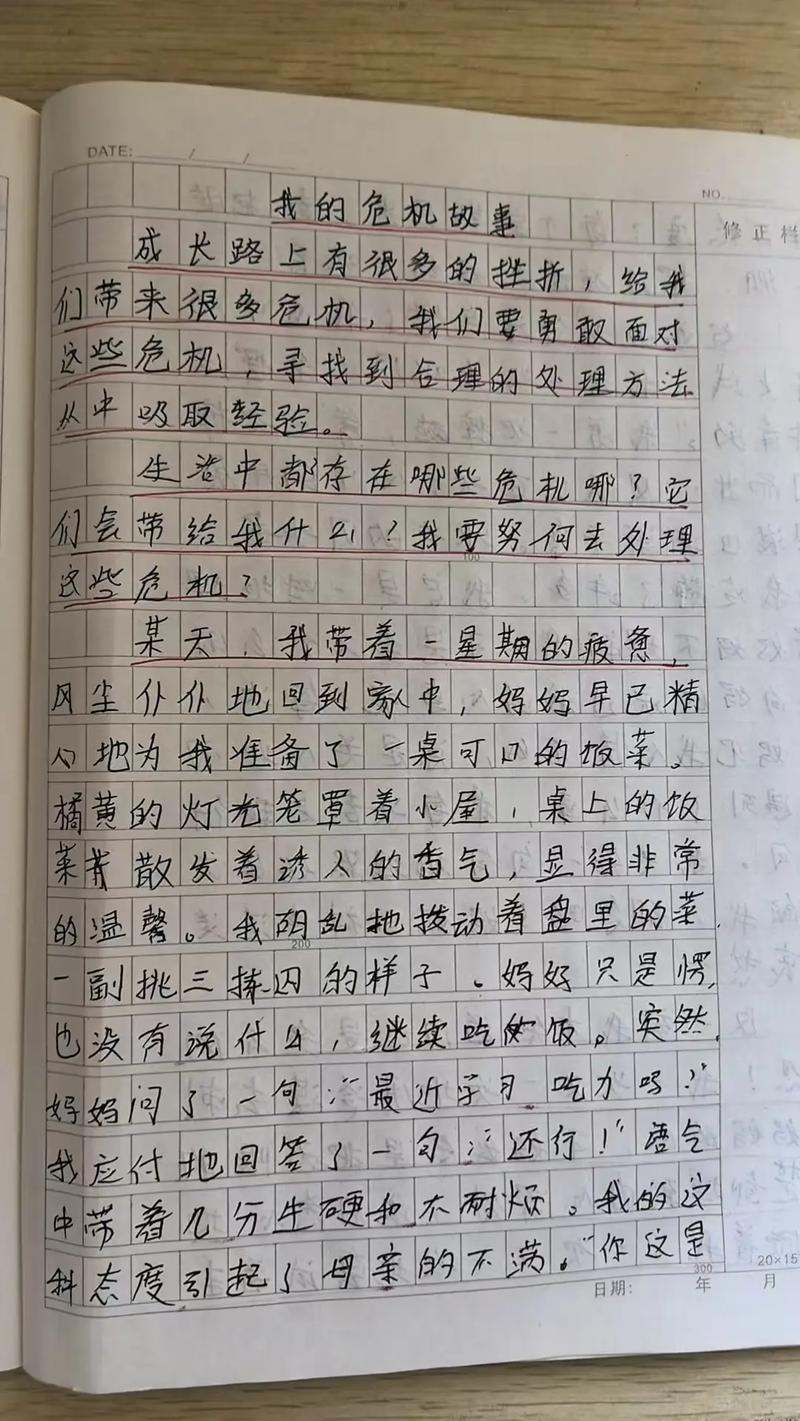 DATE: / /
NO.
修正栏
我的危机故事
成长路上有很多的挫折，给我
们带来很多危机，我们要勇敢面对
这些危机，寻找到合理的处理方法
从中吸取经验。
生活中都存在哪些危机哪？它
们会带给我什么？我要努何去处理
100
这些危机？
某天，我带着一星期的疲惫，
风尘仆仆地回到家中，妈妈早已精
心地为我准备了一桌可口的饭菜。
橘黄的灯光笼罩着小屋，桌上的饭
菜散发着诱人的香气，显得非常
的温馨。我阴乱地拨动着盘里的菜，
200
一副挑三拣四的样子。妈妈只是愣，
也没有说什么，继续吃饭。突然，
妈妈问了一句：“最近学习吃力吗？”
我应付地回答了一句：“还行！”语气
中带着几分生硬和不耐烦。我的这
种态度引起了母亲的不满。“你这是
300
20×15
日期： 年 月